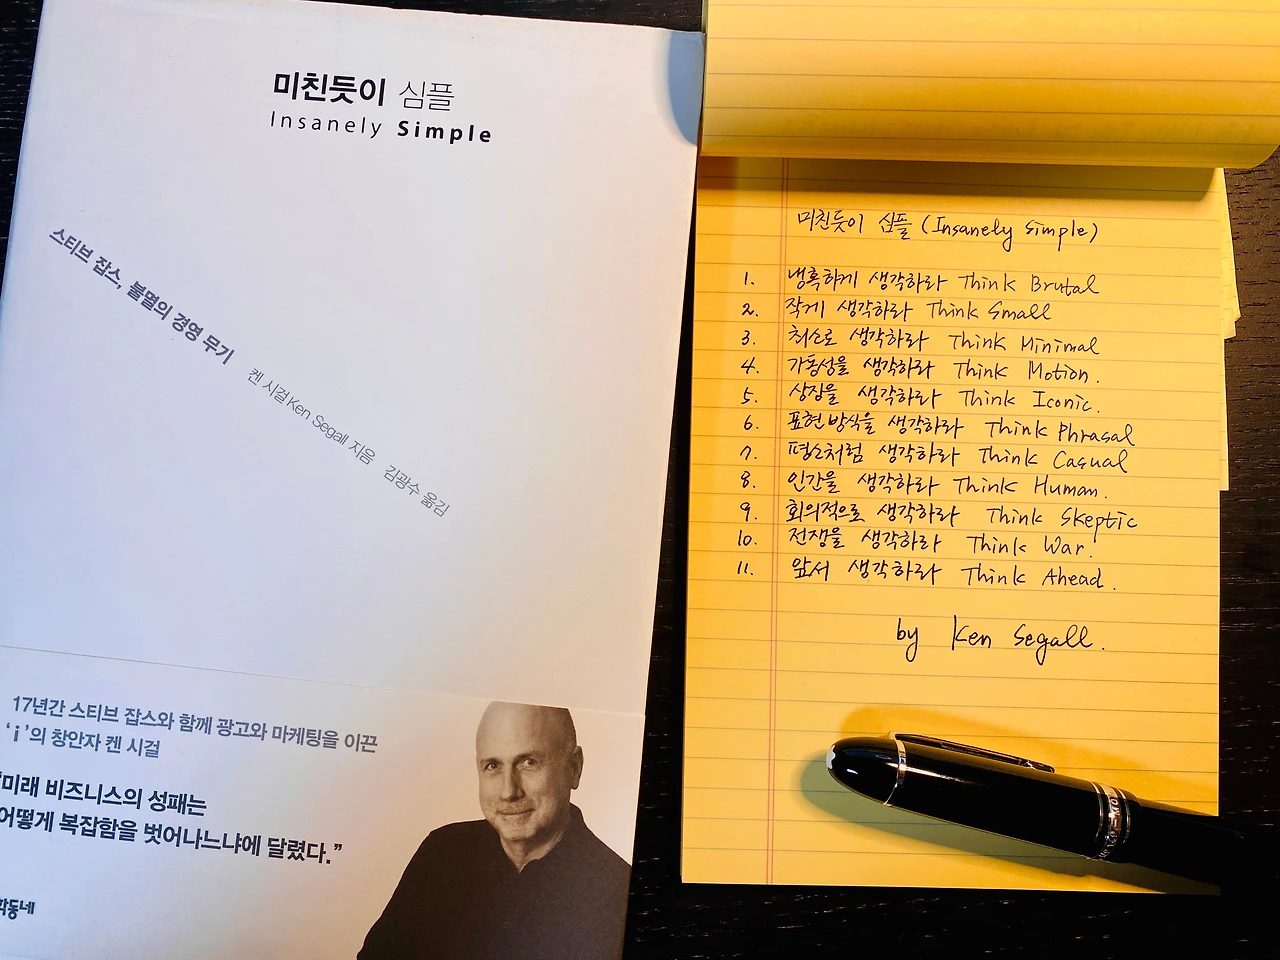 미친듯이 심플
Insanely Simple
스티브 잡스, 불멸의 경영 무기 켄 시걸Ken Segall 지음 김광수 옮김
17년간 스티브 잡스와 함께 광고와 마케팅을 이끈
‘i’의 창안자 켄 시걸
“미래 비즈니스의 성패는
어떻게 복잡함을 벗어나느냐에 달렸다.”
미친듯이 심플 (Insanely Simple)
1. 냉혹하게 생각하라 Think Brutal
2. 작게 생각하라 Think Small
3. 최소로 생각하라 Think Minimal
4. 가동성을 생각하라 Think Motion.
5. 상징을 생각하라 Think Iconic.
6. 표현방식을 생각하라 Think Phrasal
7. 평소처럼 생각하라 Think Casual
8. 인간을 생각하라 Think Human.
9. 회의적으로 생각하라 Think Skeptic
10. 전쟁을 생각하라 Think War.
11. 앞서 생각하라 Think Ahead.
by Ken Segall.